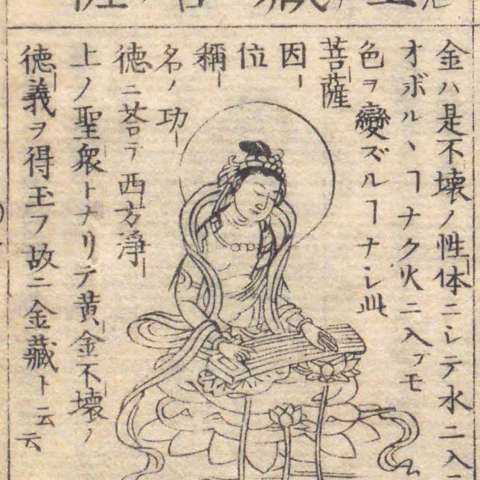 金ハ是不壊ノ性体ニシテ水ニ入
オボルヽヿナク火ニ入テモ
色ヲ變ズルヿナシ此
菩薩
因
位
稱
名ノ功
徳ニ荅テ西方淨
上ノ聖衆トナリテ黄金不壊ノ
徳義ヲ得玉フ故ニ金藏ト云云